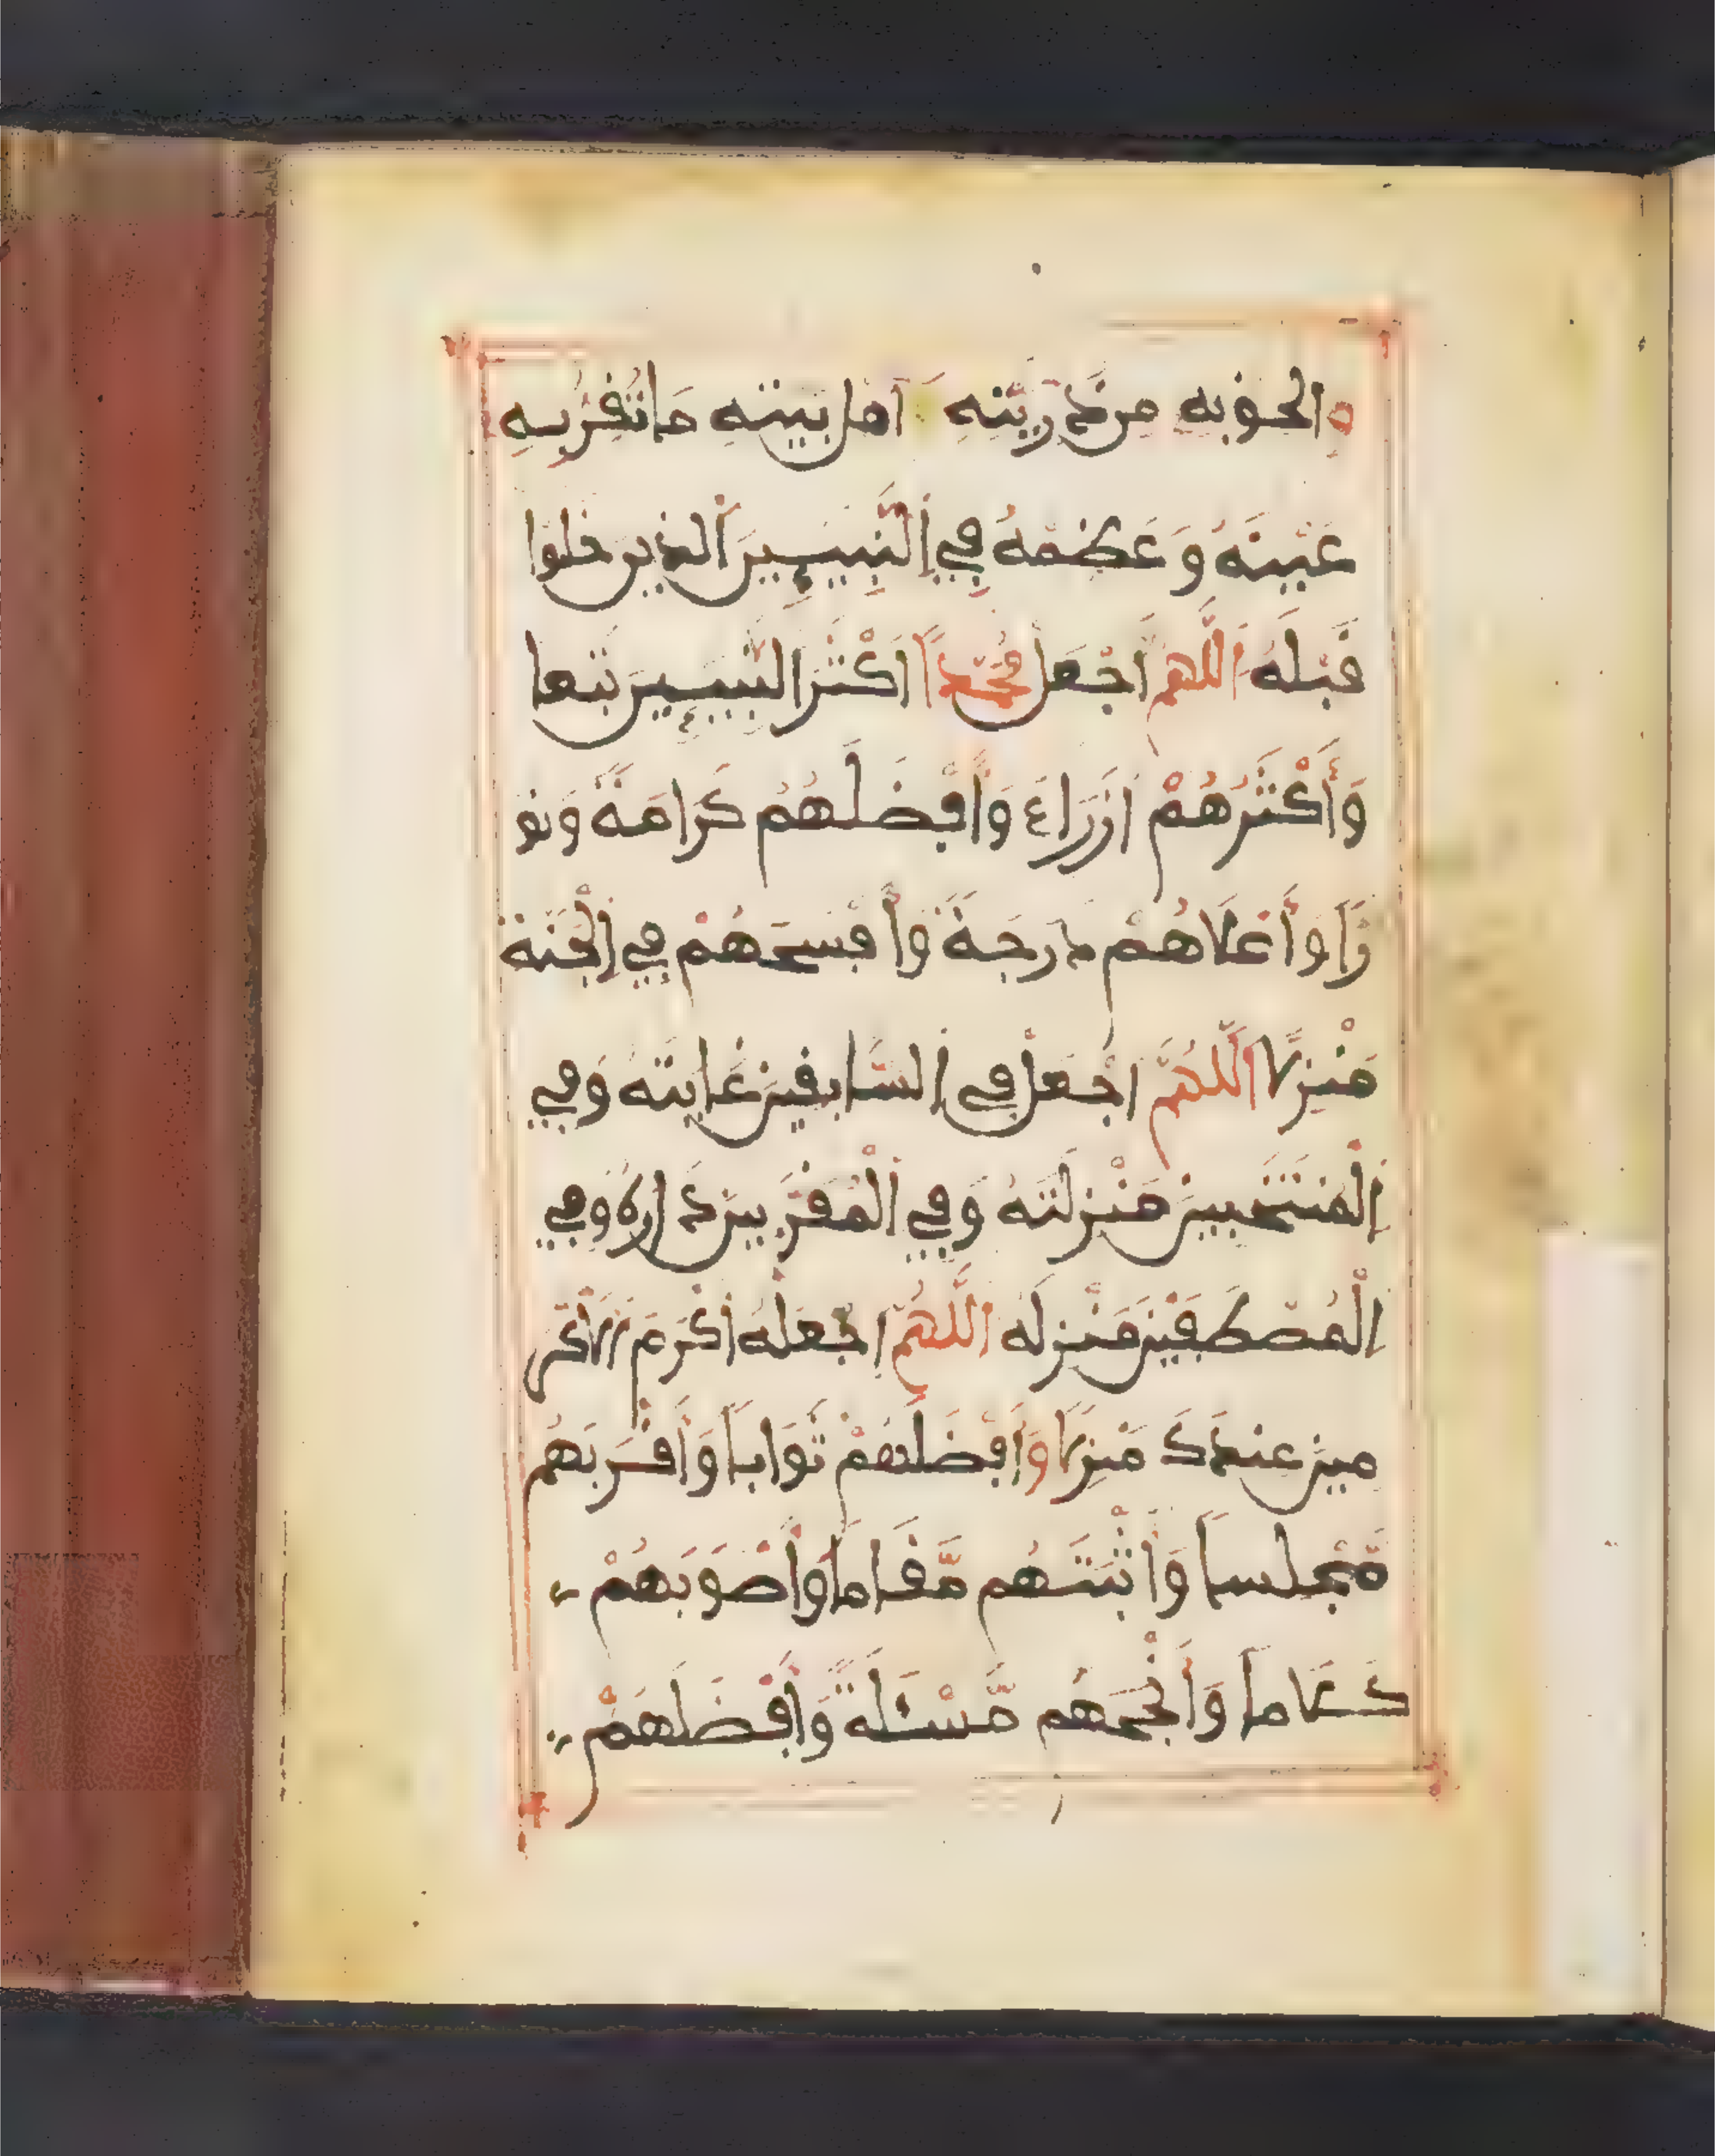 والحق به من ذريته وأهل بيته ما تقر به
عَيْنُهُ وَعَظِّمْهُ فِي النَّبِيئِينَ الذين خلوا
قَبْلَهُ اَللَّهُمَّ اجْعَل مُحَمَّداً اَكْثَرَ النَّبِيئِينَ تَبَعا
وَأَكْثَرَهُمْ ازْرَاءً وَأَفْضَلَهُمْ كَرَامَةً وَنُو
رًا وَأَعْلَاهُمْ دَرَجَةً وَأَفْسَحَهُمْ فِي اِلْجَنَّة
مَنْزِلًا اَللَّهُمَّ اجْعَلْ فِي السَّابِقِينَ غَايَتَهُ وَفِي
اِلْمُنْتَخَبِينَ مَنْزِلَتَهُ وَفِي اِلْمُقَرَّبِينَ دَارَهُ وَفِي
اِلْمُصْطَفَيْنَ مَنْزِلَهُ اللَّهُمَّ اجْعَلْهُ أَكْرَمَ الْأَكْرَ
مِينَ عِنْدَكَ مَنْزِلًا وَأَفْضَلَهُمْ ثَوَابًا وَأَقْرَبَهُمْ
مَّجْلِسًا وَأَثْبَتَهُم مَّقَامًا وَأَصْوَبَهُمْ
كَلَامًا وَأَنْجَحَهُم مَّسْئَلَةً وَأَفْضَلَهُمْ